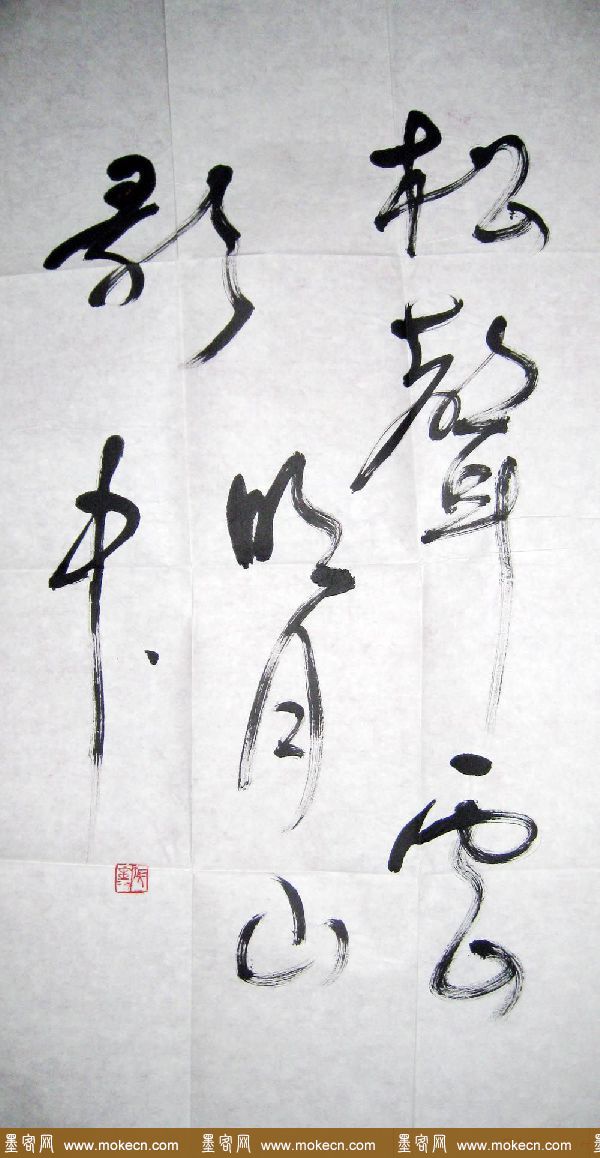 松聲雲
影明月山
中
墨客网 www.mokecn.com 墨客网 www.mokecn.com 墨客网 www.mokecn.com